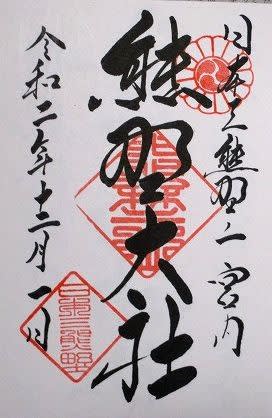 日本三熊野之一宮内
熊野大社
令和二年十二月一日
日本三熊野